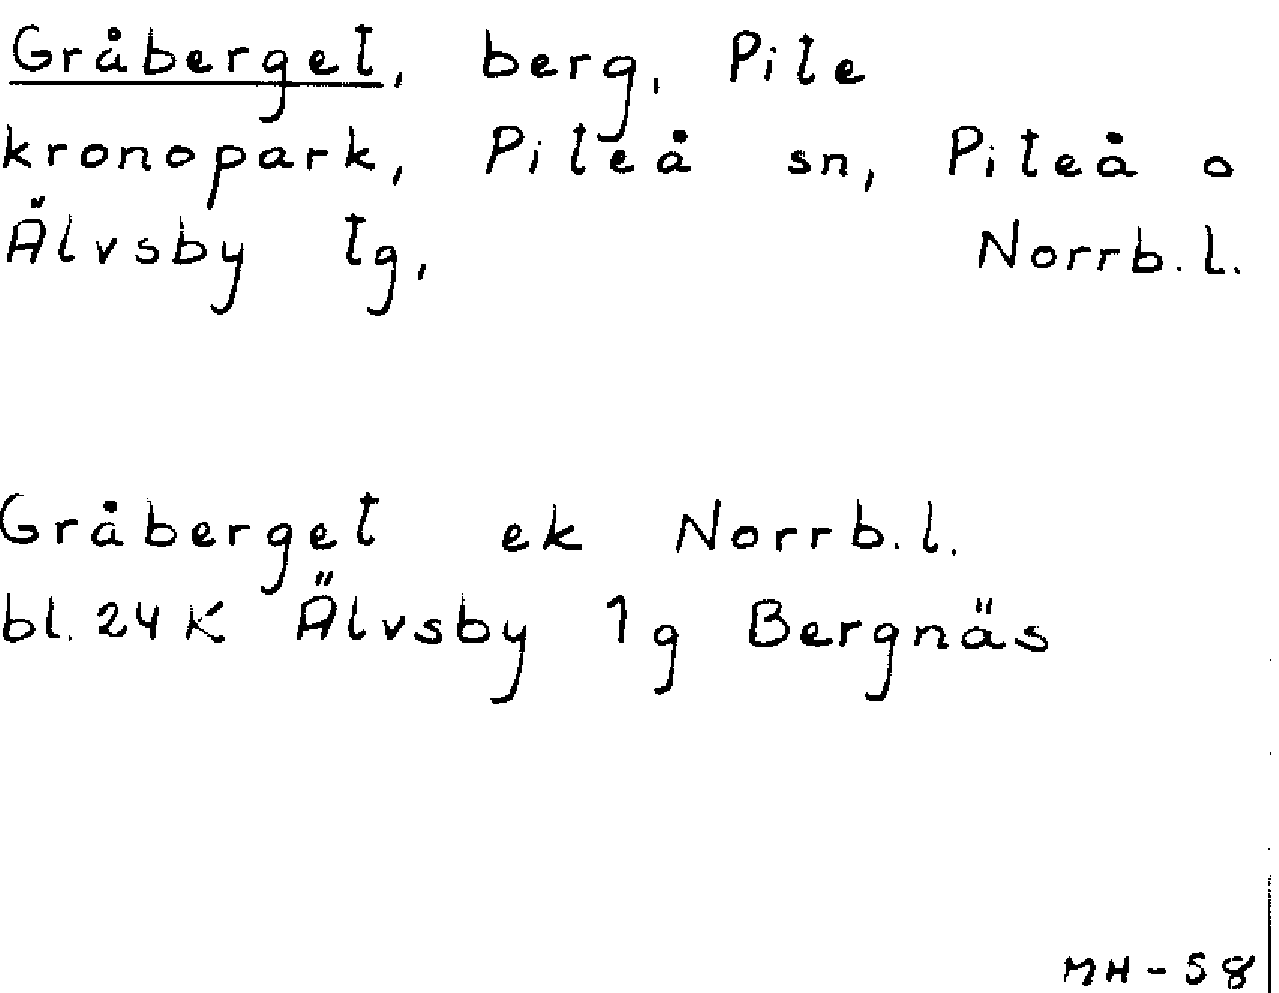 Gråberget, berg, Pite
kronopark, Piteå sn, Piteå o
Älvsby tg, Norrb.l.
Gråberget ek Norrb.l.
bl. 24 K Älvsby 1g Bergnäs
MH-58